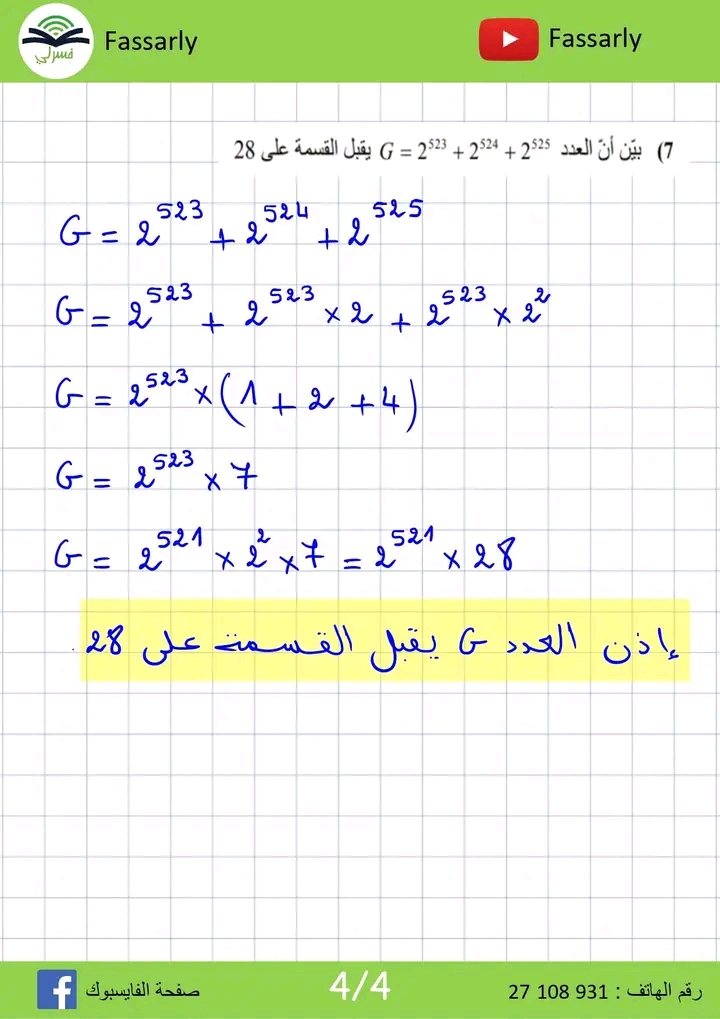 Fassarly
فسرلي
Fassarly
7) بيّن أنّ العدد G = 2⁵²³ + 2⁵²⁴ + 2⁵²⁵ يقبل القسمة على 28
G = 2⁵²³ + 2⁵²⁴ + 2⁵²⁵
G = 2⁵²³ + 2⁵²³ × 2 + 2⁵²³ × 2²
G = 2⁵²³ × (1 + 2 + 4)
G = 2⁵²³ × 7
G = 2⁵²¹ × 2² × 7 = 2⁵²¹ × 28
إذن العدد G يقبل القسمة على 28.
صفحة الفايسبوك
4/4
رقم الهاتف : 931 108 27